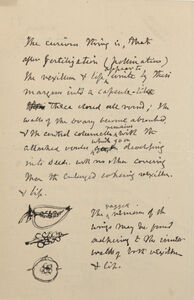 The curious thing is, that
after fertilization (pollination)
appears to
The vexillum & lip unite by their
margins into a capsule-like
three closed all round; the
walls of the ovary become absorbed
remains
& the central columella with the
attached ovules which go on developing
into seeds with no other covering
than the enlarged cohering vexillum
& lip.
The ragged remains of the
wings may be found
adhering to the inside
walls of both vexillum
& lip.